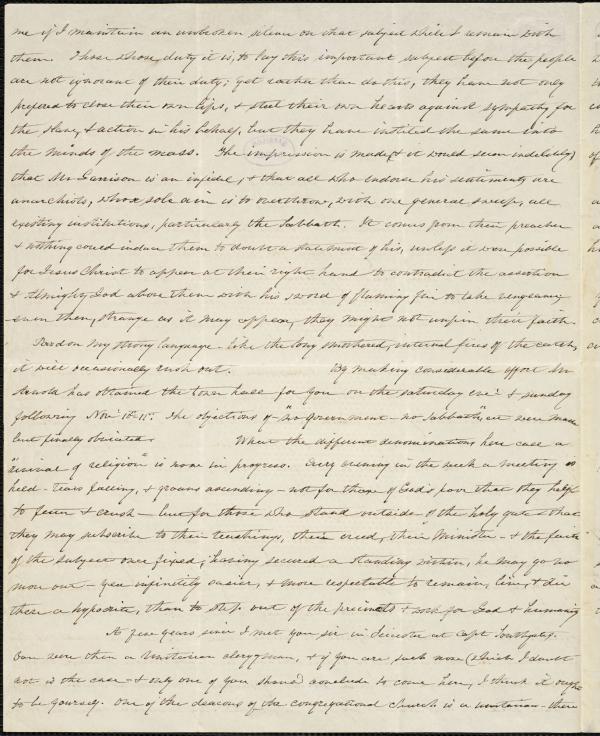 me if I maintain an unbroken silence on that subject while I remain with
them. Those whose duty it is, to lay this important subject before the people
are not ignorant of their duty; yet rather than do this, they have not only
prefered to close their own lips, & steel their own hearts against sympathy for
the slave, & action in his behalf, but they have instilled the same into
the minds of the mass. The impression is made (& it would seem indelibly)
that Mr Garrison is an infidel, & that all who endorse his sentiments are
anarchists, whose sole aim is to overthrow, with one general sweep, all
existing institutions, particularly the Sabbath. It comes from their preacher
& nothing could induce them to doubt a statement of his, unless it were possible
for Jesus Christ to appear at their right hand to contradict the assertion
& Almighty God above them with his sword of flaming fire to take vengeance
– even then, strange as it may appear, they might not unpin their faith.
Pardon my strong language – like the long smothered, internal fires of the earth,
it will occasionally rush out. By making considerable effort Mr
Arnold has obtained the town hall for you on the saturday eve & sunday
following Nov. 10th 11th. The objections of – "no government – no Sabbath", were made
but finally obviated. What the different denominations here call a
"revival of religion" is now in progress. Every evening in the week a meeting is
held – tears falling, & groans ascending – not for those of God's poor that they help
to fetter & crush – but for those who stand outside of the holy gate – that
they may subscribe to their teachings, their creed, their Minister – & the faith
of the subject once fixed, having secured a standing within, he may go no
more out – yea infinitely easier, & more respectable to remain, live, & die
there a hypocrite, than to step out of the precincts & work for God & humanity
A few years since I met you sir in Leicester at Capt Southgate's.
You were then a Unitarian clergyman, & if you are such now (which I doubt
not is the case – & only one of you should conclude to come here, I think it ought
to be yourself. One of the deacons of the congregational church is a unitarian – there